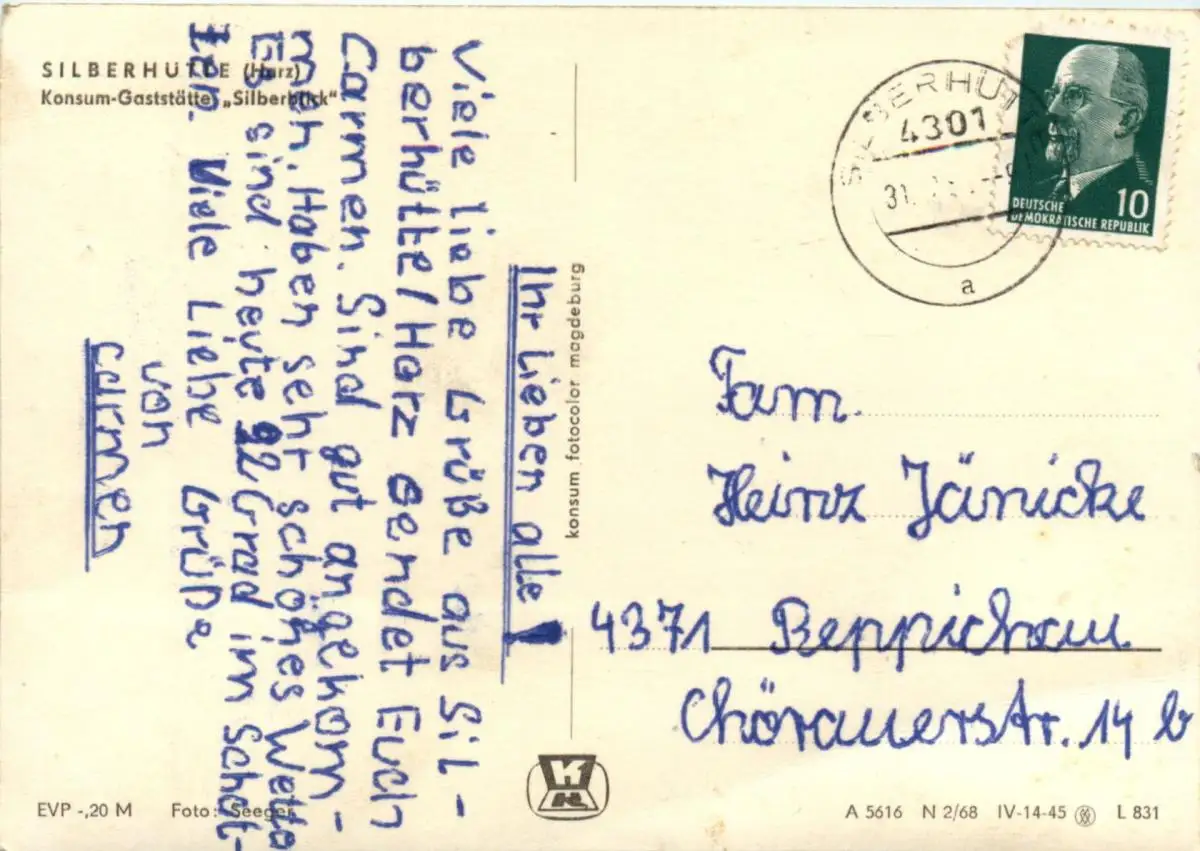 SILBERHÜTTE (Harz)
Konsum-Gaststätte „Silberblick“
Ihr Lieben alle!
Viele liebe Grüße aus Sil-
berhütte/Harz sendet Euch
Carmen. Sind gut angekom-
men. Haben seht schönes Wette
Es sind heute 22 Grad im Schat-
ten. Viele Liebe Grüße
von
Carmen
konsum fotocolor magdeburg
SILBERHÜTTE
4301
31.
a
DEUTSCHE
DEMOKRATISCHE REPUBLIK
10
Fam.
Heinz Jänicke
4371 Reppichau
Chörauerstr. 14 b
EVP -,20 M Foto: Seeger
K
A 5616 N 2/68 IV-14-45 L 831